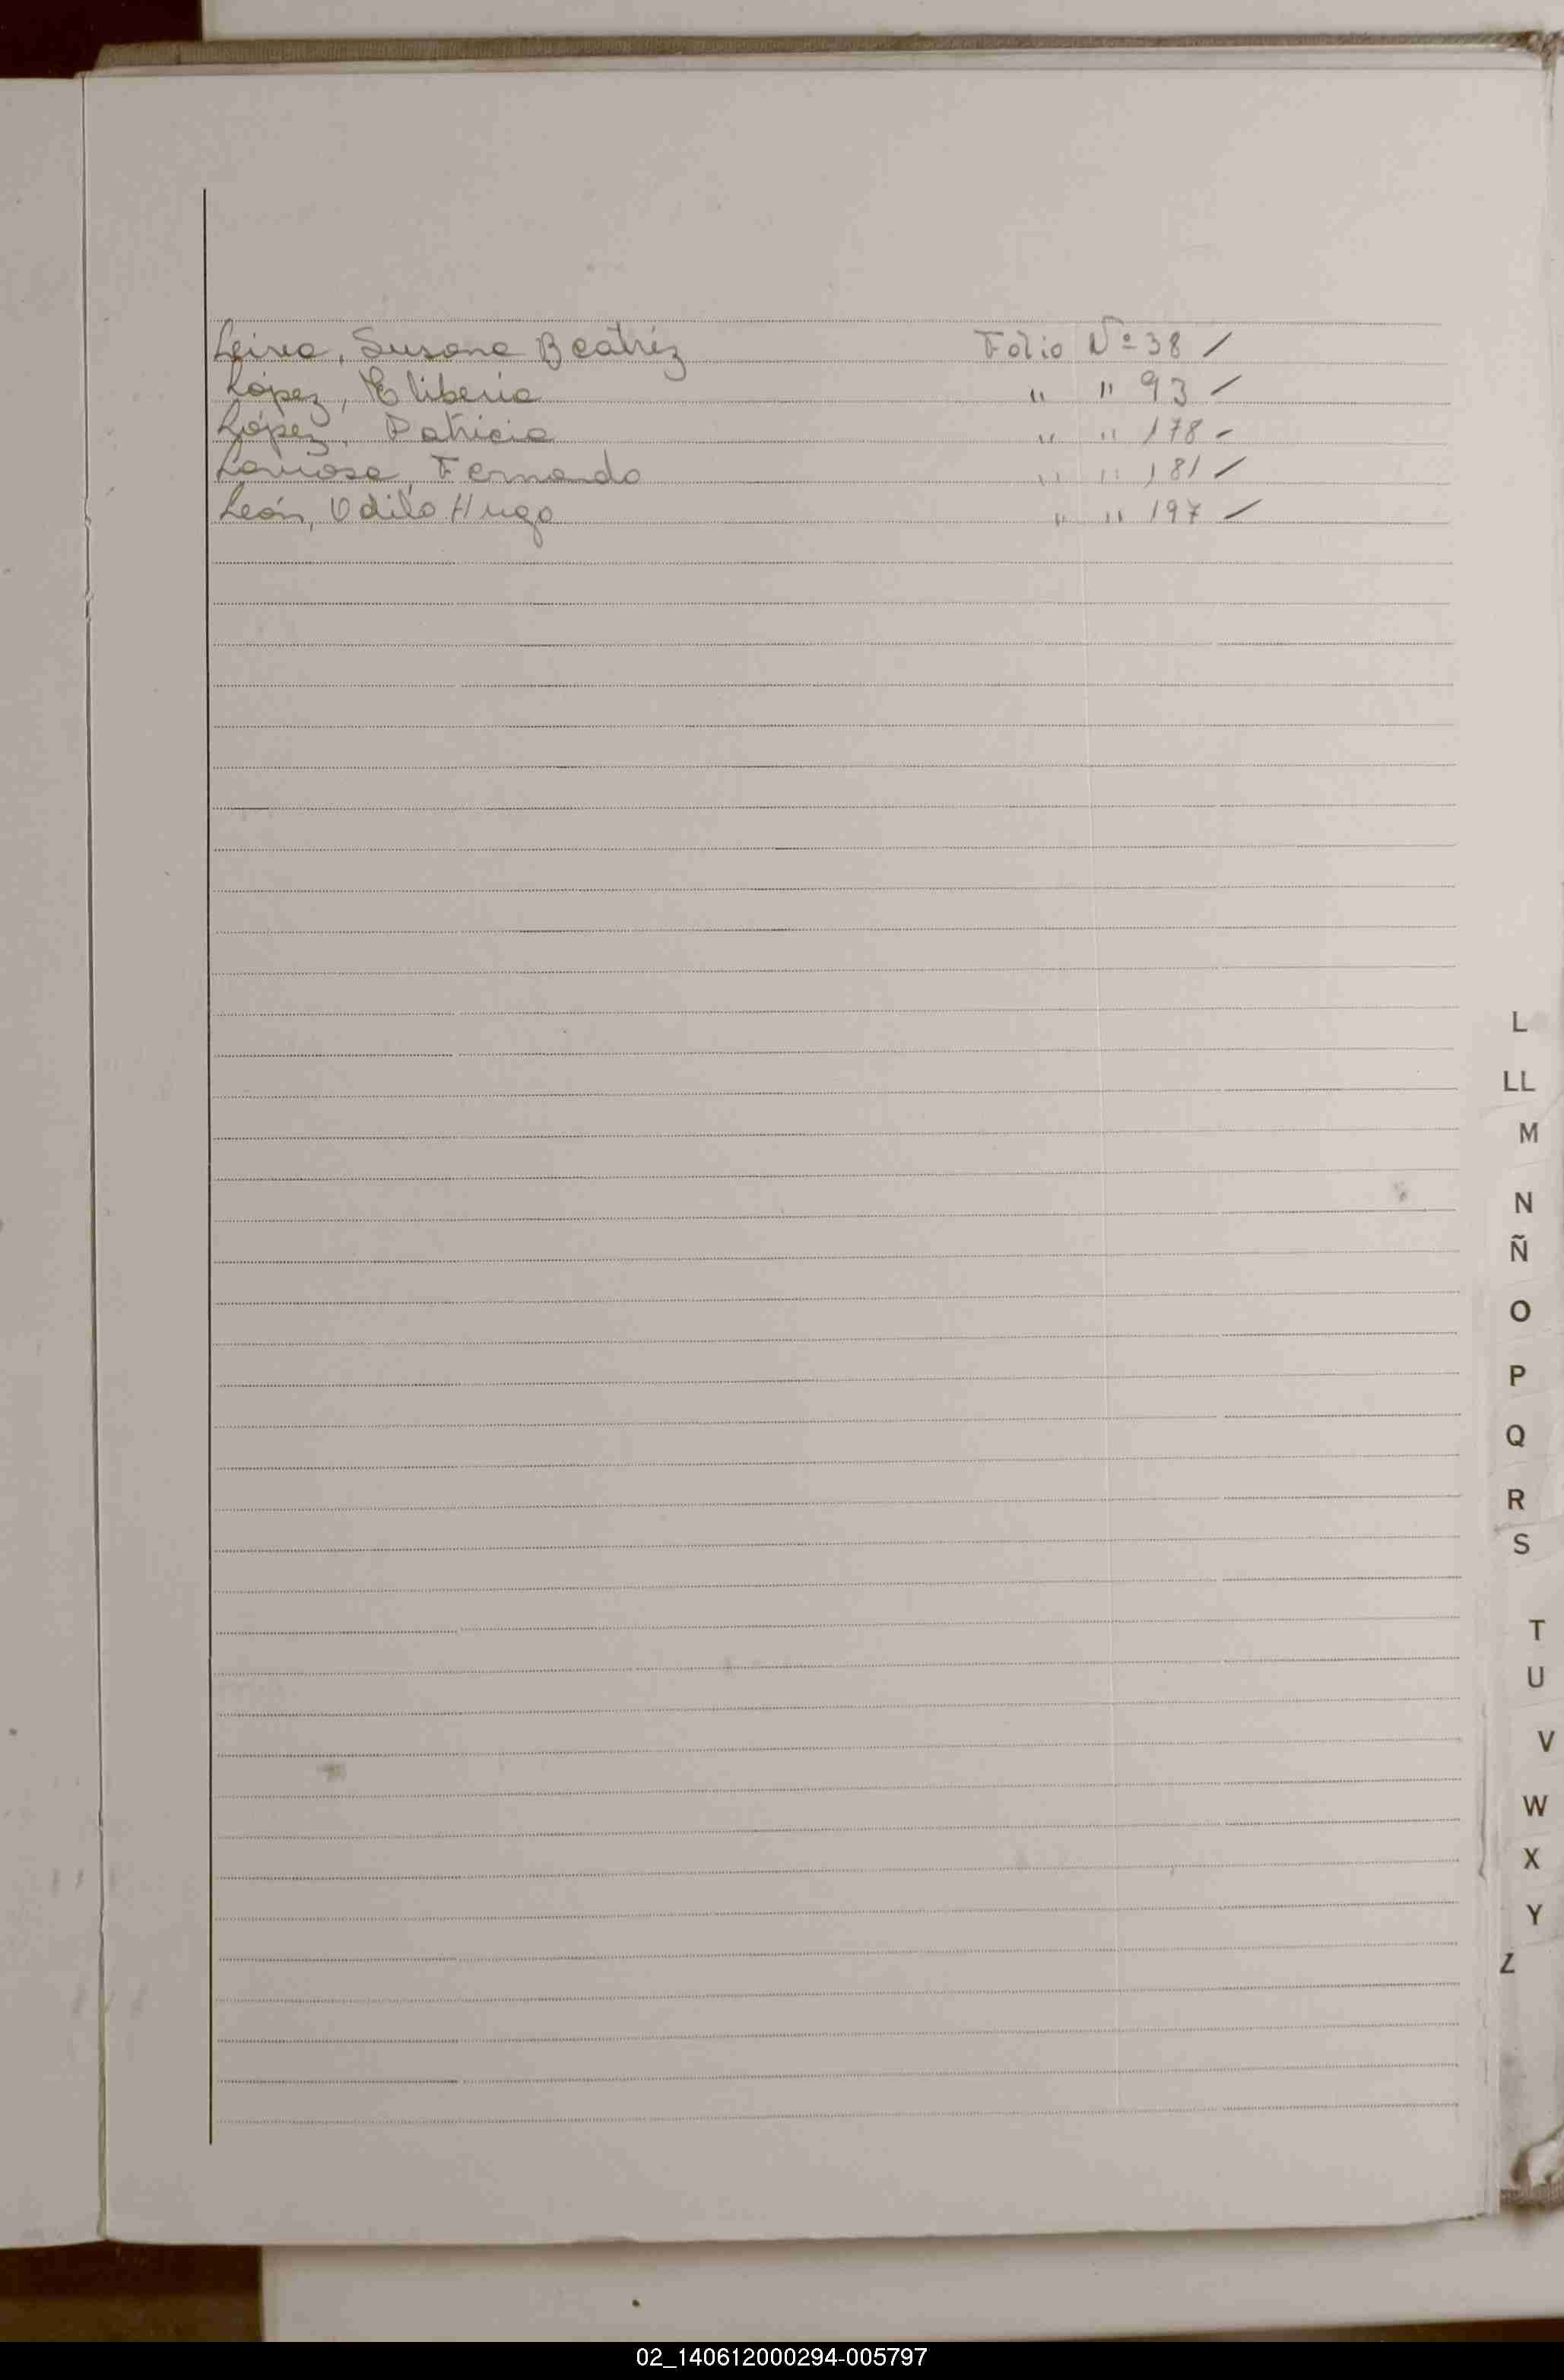 Leiva, Susana Beatríz Folio Nº 38 /
López, Eliberia " " 93 /
López, Patricia " " 178 -
Lariosa, Fernando " " 181 /
León, Odilo Hugo " " 197 /
L
LL
M
N
Ñ
O
P
Q
R
S
T
U
V
W
X
Y
Z
02_140612000294-005797